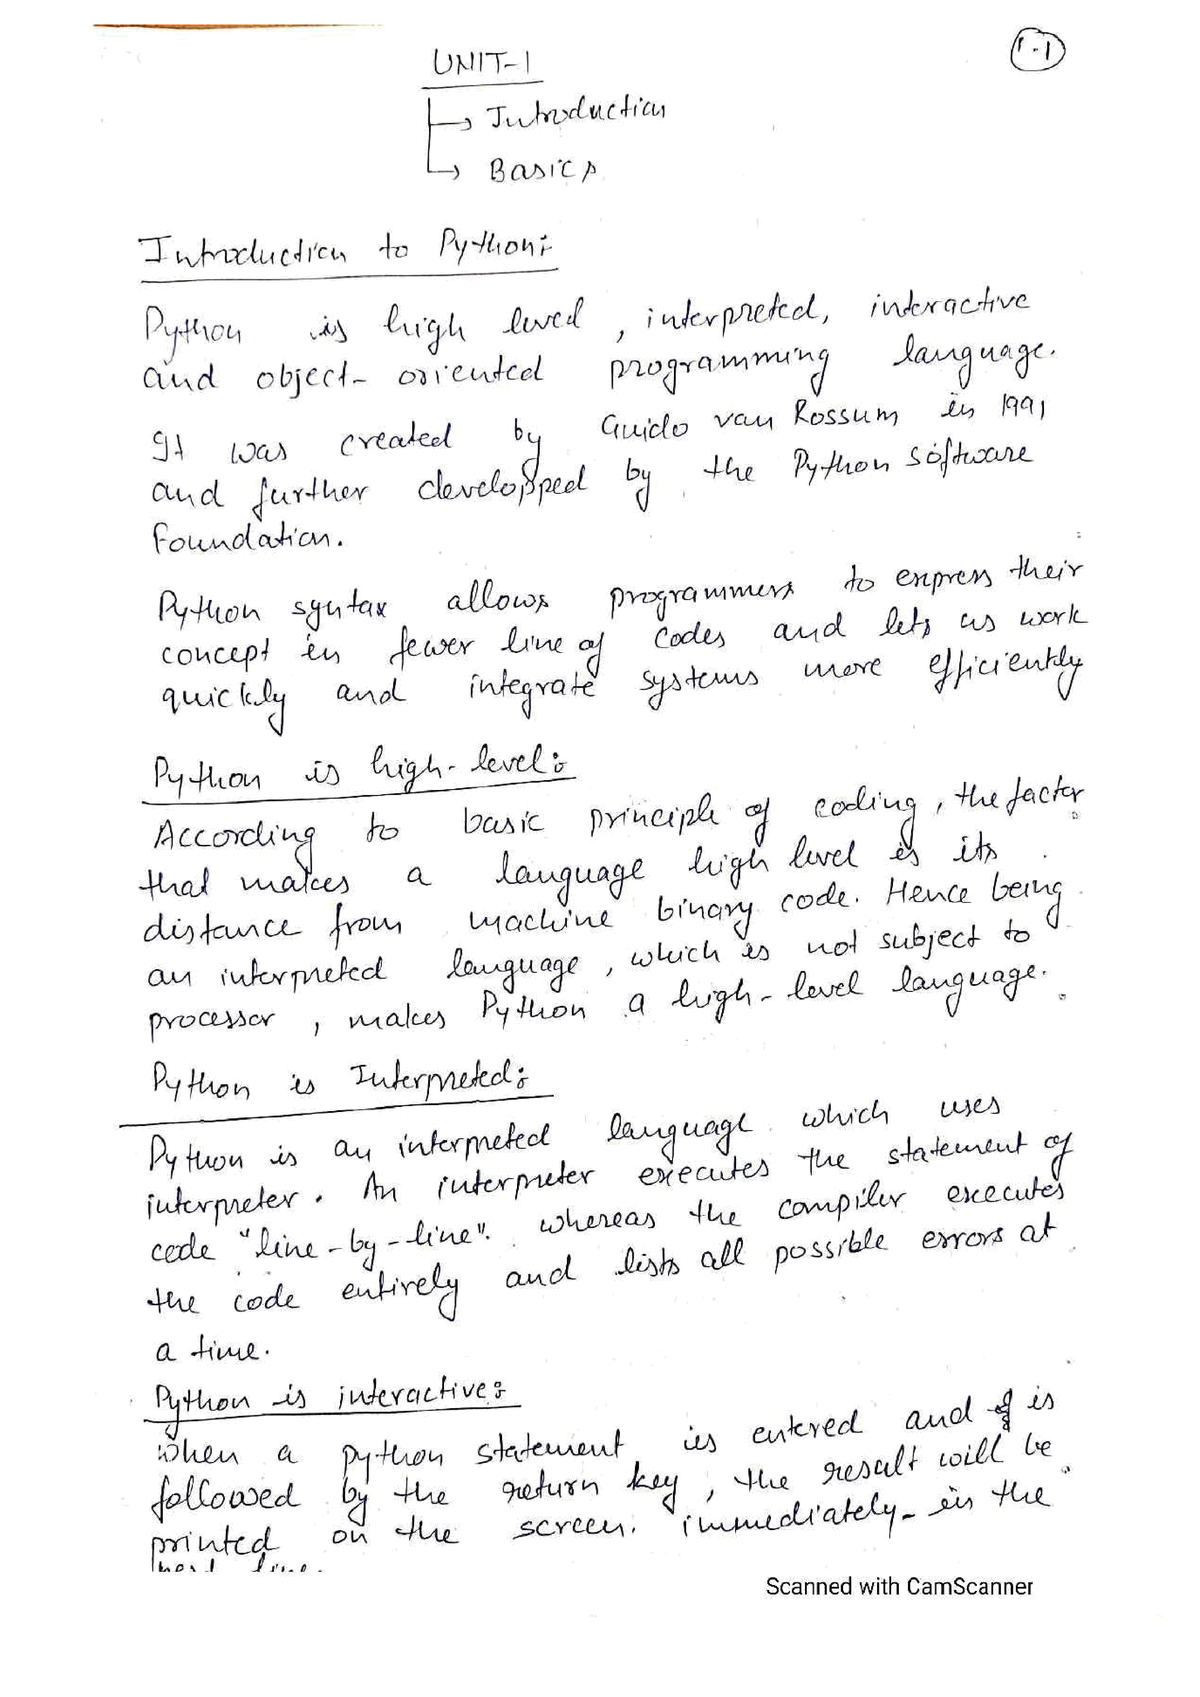 1-1
UNIT-1
Introduction
Basics
Introduction to Python:
Python is high level, interpreted, interactive
and object-oriented programming language.
It was created by Guido van Rossum in 1991
and further developped by the Python software
foundation.
Python syntax allows programmers to express their
concept in fewer line of codes and lets us work
quickly and integrate systems more efficiently
Python is high-level:
According to basic principle of coding, the factor
that makes a language high level is its
distance from machine binary code. Hence being
an interpreted language, which is not subject to
processor, makes Python a high-level language.
Python is Interpreted:
Python is an interpreted language which uses
interpreter. An interpreter executes the statement of
code "line-by-line". whereas the compiler executes
the code entirely and lists all possible errors at
a time.
Python is interactive:
When a python statement is entered and is
followed by the return key, the result will be
printed on the screen. immediately- in the
next line.
Scanned with CamScanner